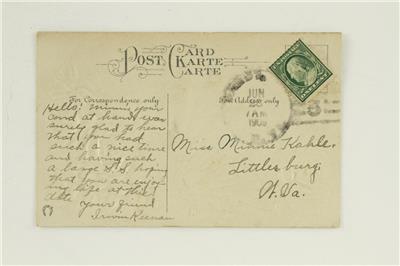 POST CARD
KARTE
CARTE
For Correspondence only
For Address only
Hello! Minnie your
card at hand was
surely glad to hear
that you had
such a nice time
and having such
a large S.S. hoping
that you are enjoy
ing life at this
date your friend
Irvin Keenan
JUN
7 AM
1909
Miss Minnie Kahle.
Littlesburg.
W. Va.